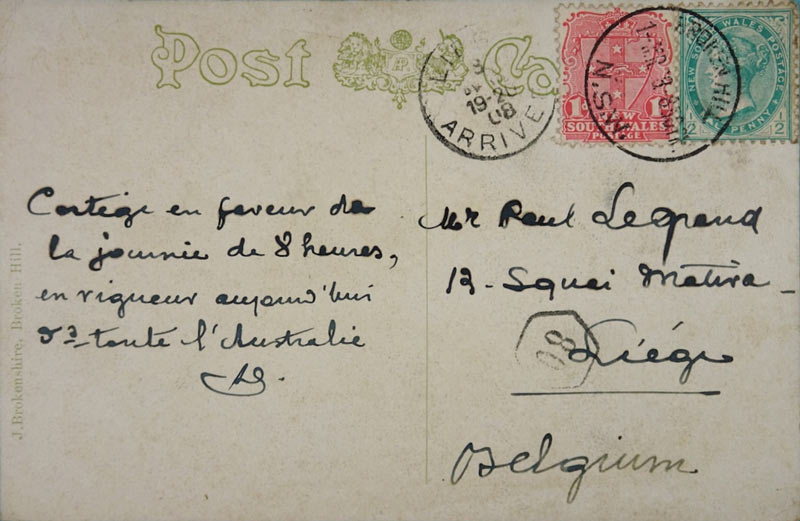 Post
1d NEW
SOUTH WALES
POSTAGE
NEW SOUTH WALES POSTAGE
1/2 PENNY 1/2
BROKEN HILL
N.S.W.
19-20
08
ARRIVE
Cortége en faveur de
la journée de 8 heures,
en vigueur aujourd'hui
ds toute l'Australie
Mr Paul Legrand
13 - Squai Mativa -
Liége
Belgium
08
J. Brokenshire, Broken Hill.